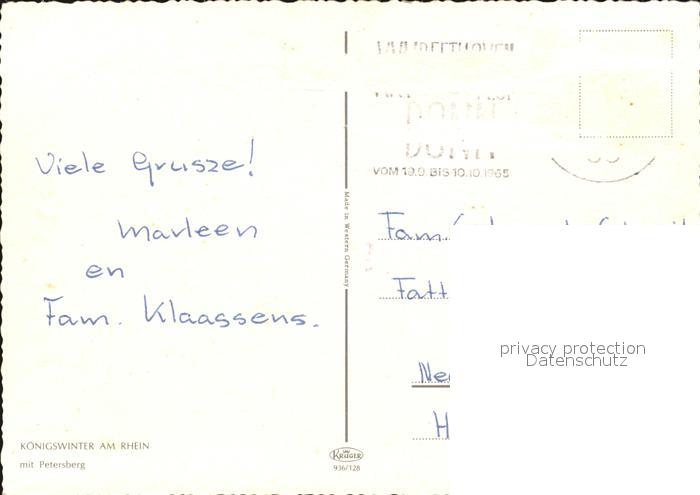 Viele Grusze!
Marleen
en
Fam. Klaassens.
KÖNIGSWINTER AM RHEIN
mit Petersberg
Made in Western Germany
KRÜGER
936/128
BEETHOVEN
BONN
VOM 19.9. BIS 10.10.1965
Fam.
privacy protection
Datenschutz